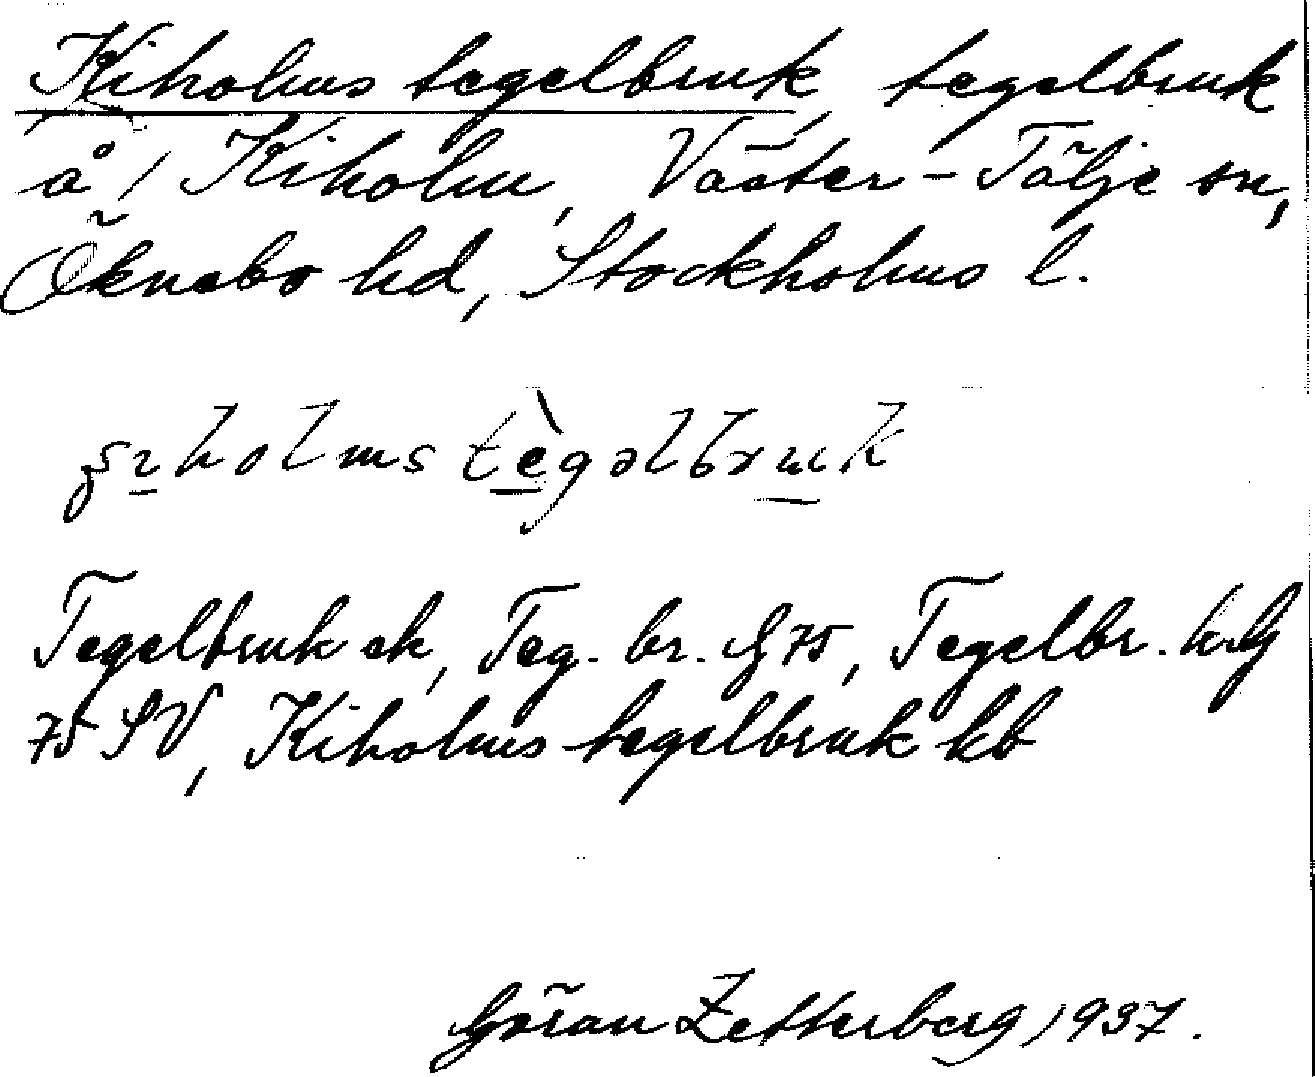 Kiholms tegelbruk, tegelbruk
å 1 Kiholm, Väster-Tälje sn,
Öknebo hd, Stockholms l.
holms tègəlbruk
Tegelbruk ek, Teg. br. G 75, Tegelbr. hG
75 SV, Kiholms tegelbruk kb
Göran Zetterberg 1937.